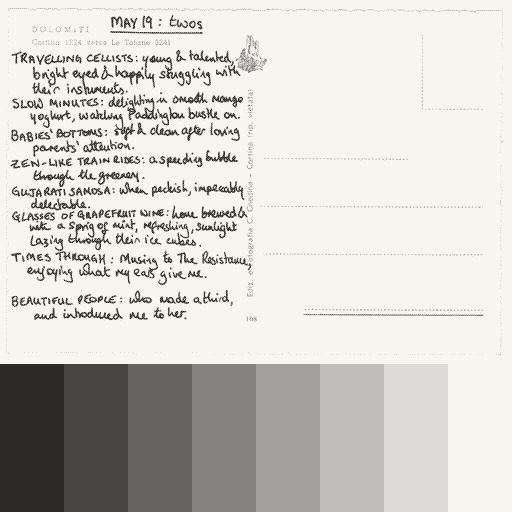 MAY 19 : twos
DOLOMITI
Cortina 1224 verso Le Tofane 3241
TRAVELLING CELLISTS: young & talented,
bright eyed & happily struggling with
their instruments.
SLOW MINUTES: delighting in smooth mango
yoghurt, watching Paddington bustle on.
BABIES' BOTTOMS: soft & clean after loving
parents' attention.
ZEN-LIKE TRAIN RIDES: a speeding bubble
through the greenery.
GUJARATI SAMOSA: when peckish, impeccably
delectable.
GLASSES OF GRAPEFRUIT WINE: home brewed &
with a sprig of mint, refreshing, sunlight
lazing through their ice cubes.
TIMES THROUGH: Musing to The Resistance,
enjoying what my ears give me.
BEAUTIFUL PEOPLE: who made a third,
and introduced me to her.
Ediz. e Fotografia C. Ghedina - Cortina (rip. vietata)
168